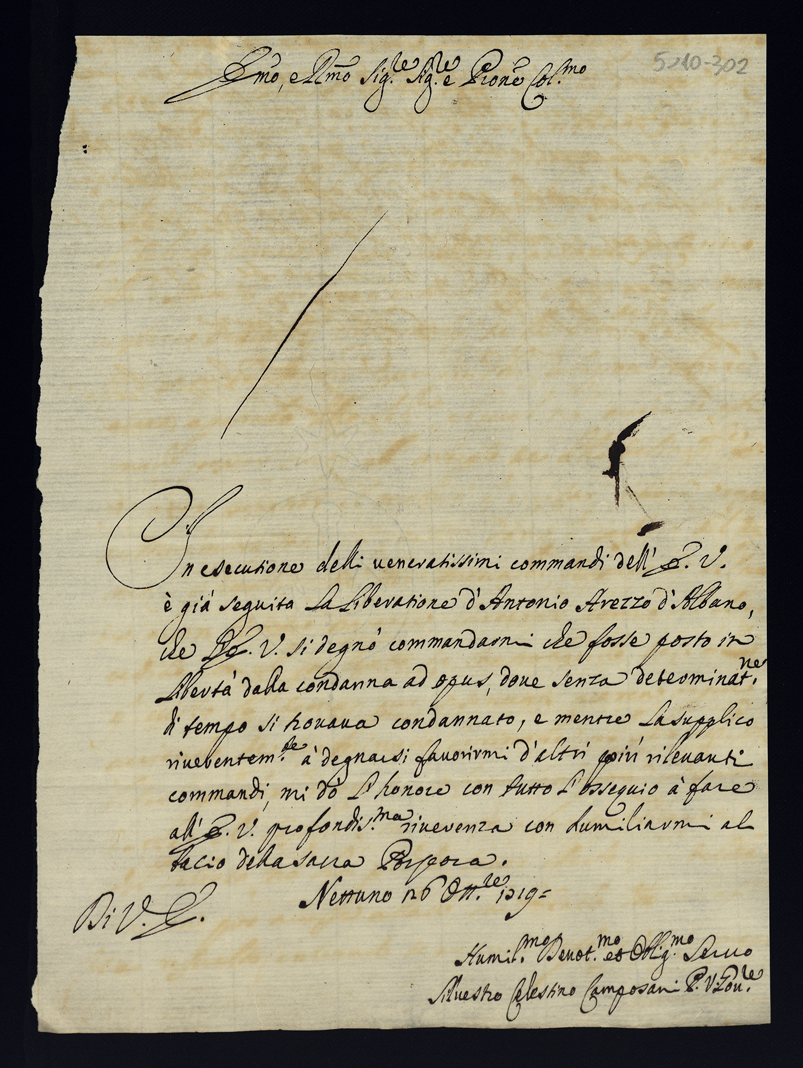 5210-302
Em̃o, e Rm̃o Sig.re Sig.re e Pron̄e Col.mo
In esecutione delli veneratissimi commandi dell' E. V.
è già seguita la liberatione d'Antonio Arezzo d'Albano,
che l'E. V. si degnò commandarmi che fosse posto in
libertà dalla condanna ad opus, dove senza determinat.ne
di tempo si trovava condannato, e mentre la supplico
riverentem.te à degnarsi favorirmi d'altri più rilevanti
commandi, mi dò l'honore con tutto l'ossequio à fare
all' E. V. profondis.ma riverenza con humiliarmi al
bacio della sacra Porpora.
Nettuno 26 Ott.re 1719=
Di V. E.
Humil.mo Devot.mo et Oblig.mo Servo
Silvestro Celestino Camposani